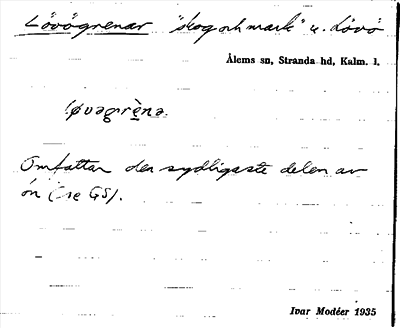 Lövögrenar "skog och mark" u. Lövö
Ålems sn, Stranda hd, Kalm. l.
Omfattar den sydligaste delen av
ön (se GS).
Ivar Modéer 1935